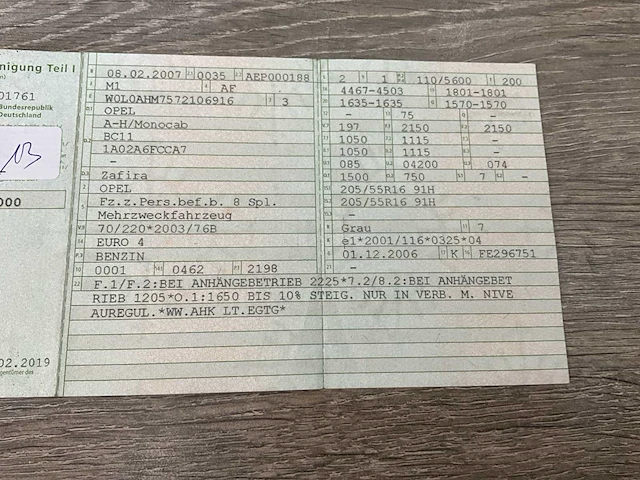 nigung Teil I
01761
Bundesrepublik
Deutschland
03
000
02.2019
08.02.2007 0035 AEP000188
M1 AF
W0L0AHM7572106916 3
OPEL
A-H/Monocab
BC11
1A02A6FCCA7
-
Zafira
OPEL
Fz.z.Pers.bef.b. 8 Spl.
Mehrzweckfahrzeug
70/220*2003/76B
EURO 4
BENZIN
0001 0462 2198
2 1 110/5600 200
4467-4503 1801-1801
1635-1635 1570-1570
- 75 -
197 2150 2150
1050 1115 -
1050 1115 -
085 04200 074
1500 750 7 -
205/55R16 91H
205/55R16 91H
-
Grau 7
e1*2001/116*0325*04
01.12.2006 K FE296751
-
F.1/F.2:BEI ANHÄNGEBETRIEB 2225*7.2/8.2:BEI ANHÄNGEBET
RIEB 1205*O.1:1650 BIS 10% STEIG. NUR IN VERB. M. NIVE
AUREGUL.*WW.AHK LT.EGTG*